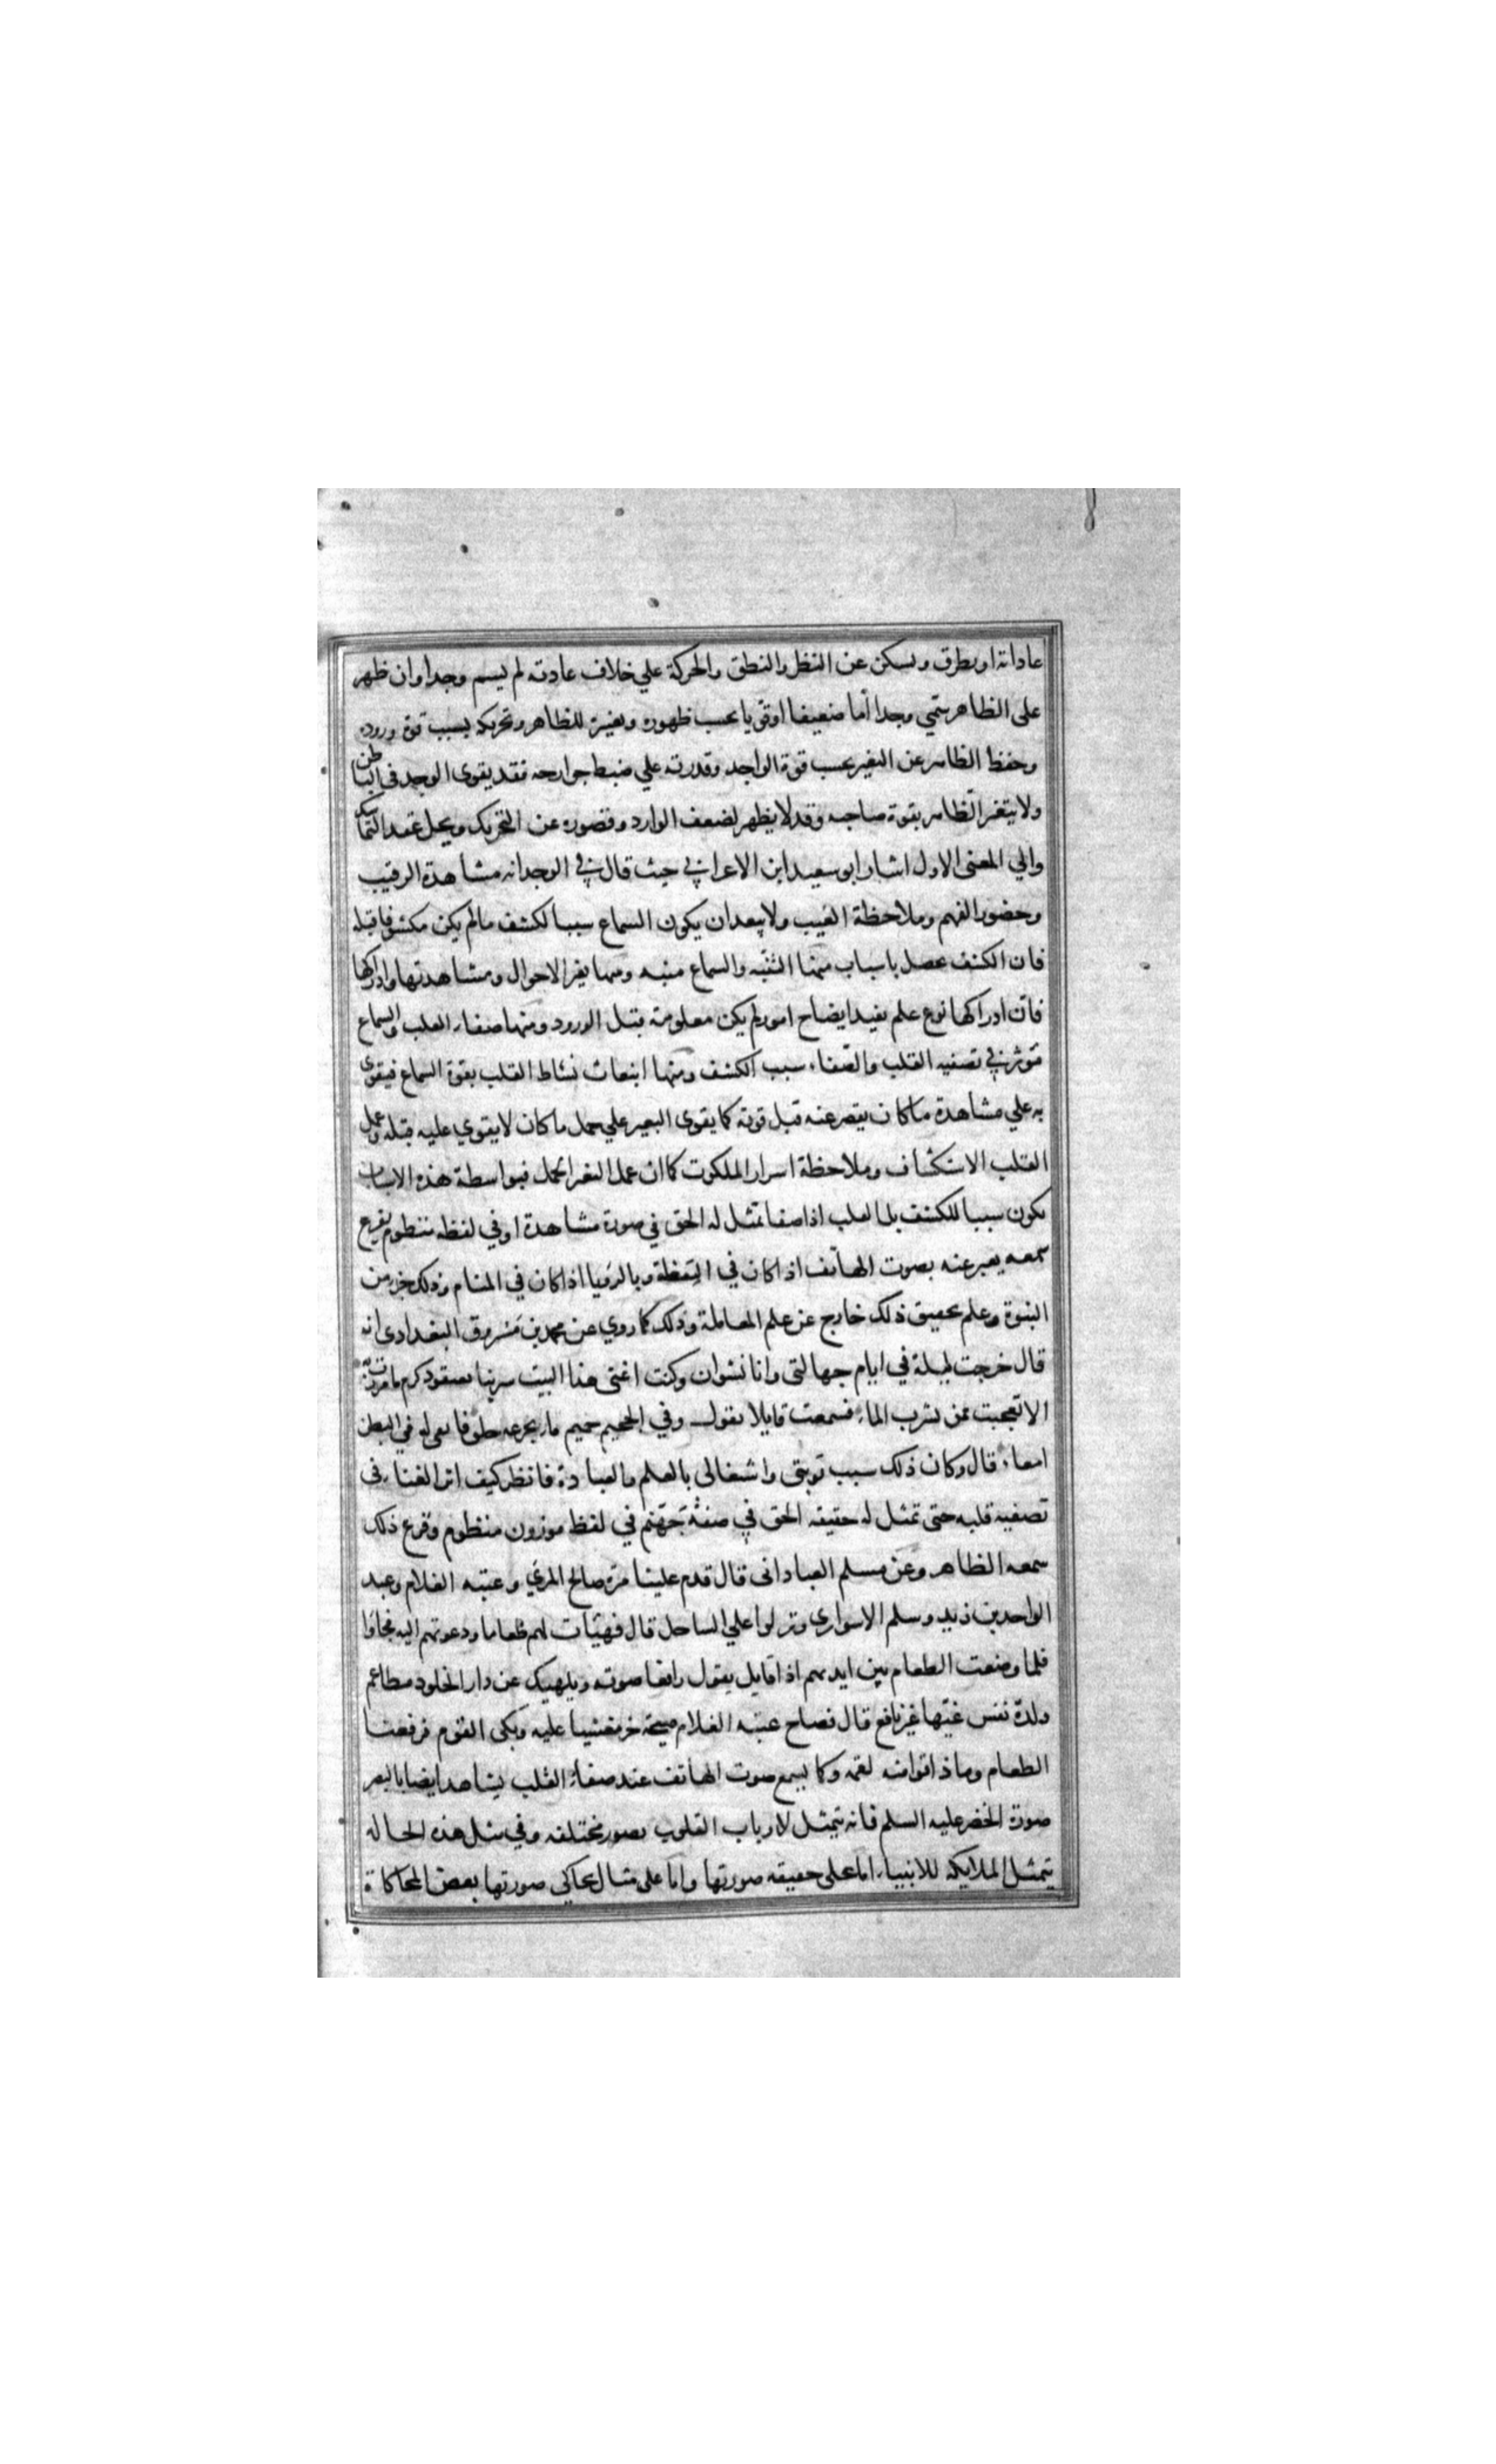 عاداته او يطرق ويسكن عن النظر والنطق والحركة علي خلاف عادته لم يسم وجدا وان ظهر
على الظاهر سمي وجدا أما ضعيفا او قويا بحسب ظهوره وتغييره للظاهر وتحريكه بسبب قوة وروده
وحفظ الظاهر عن التغير بحسب قوة الواجد وقدرته علي ضبط جوارحه فقد يقوى الوجد في الباطن
ولا يتغير الظاهر بقوة صاحبه وقد لا يظهر لضعف الوارد وقصوره عن التحريك ويحل عقد التماسك
والي المعنى الاول اشار ابو سعيد ابن الاعرابي حيث قال في الوجد انه مشاهدة الرقيب
وحضور الفهم وملاحظة الغيب ولا يبعد ان يكون السماع سببا لكشف مالم يكن مكشوفا قبله
فان الكشف يحصل باسباب منها التنبّه والسماع منبه ومنها تغير الاحوال ومشاهدتها وادراكها
فان ادراكها نوع علم يفيد ايضاح امور لم يكن معلومة قبل الورود ومنها صفاء القلب والسماع
مؤثر في تصفيه القلب والصّفاء سبب الكشف ومنها انبعاث نشاط القلب بقوة السماع فيقوى
به علي مشاهدة ما كان يقصر عنه قبل قوته كما يقوى البعير علي حمل ما كان لا يقوي عليه قبله وعمل
القلب الاستكشاف وملاحظة اسرار الملكوت كما ان عمل البعير الحمل فبواسطة هذه الاسباب
يكون سببا للكشف بل القلب اذا صفا تمثل له الحق في صورة مشاهدة او في لفظ منظوم يقرع
سمعه يعبر عنه بصوت الهاتف اذا كان في اليقظة وبالرؤيا اذا كان في المنام وذلك جزء من
النبوة وعلم تحقيق ذلك خارج عن علم المعاملة وذلك كما روي عن محمد بن مسروق البغدادي انه
قال خرجت ليلة في ايام جهالتى وانا نشوان وكنت اغنى هذا البيت كرم ما مررت به
الا تعجبت ممن يشرب الماء فسمعت قايلا يقول وفي الجحيم حميم ما تجرعه حلق فابقى له في البطن
امعاء قال وكان ذلك سبب توبتى واشتغالى بالعلم والعبادة فانظر كيف اثر الغناء فى
تصفيه قلبه حتى تمثل له حقيقه الحق في صفة جهنم في لفظ موزون منظوم وقرع ذلك
سمعه الظاهر وعن مسلم العبادانى قال قدم علينا مرة صالح المري وعتبه الغلام وعبد
الواحد بن زيد ومسلم الاسواري ونزلوا علي الساحل قال فهيّات لهم طعاما ودعوتهم اليه فجاؤا
فلما وضعت الطعام بين ايديهم اذا قايل يقول رافعا صوته ويلهيك عن دار الخلود مطاعم
ولذة نفس غيّها غير نافع قال فصاح عتبه الغلام صيحة خر مغشيا عليه وبكى القوم فرفعنا
الطعام وما ذاقوا منه لقمه وكما يسمع صوت الهاتف عند صفاء القلب يشاهد ايضا بالبصر
صورة الخضر عليه السلم فانه يتمثل لارباب القلوب بصور مختلفه وفي مثل هذه الحاله
يتمثل الملايكه للانبياء اما على حقيقه صورتها واما على مثال يحاكي صورتها بعض المحاكاة